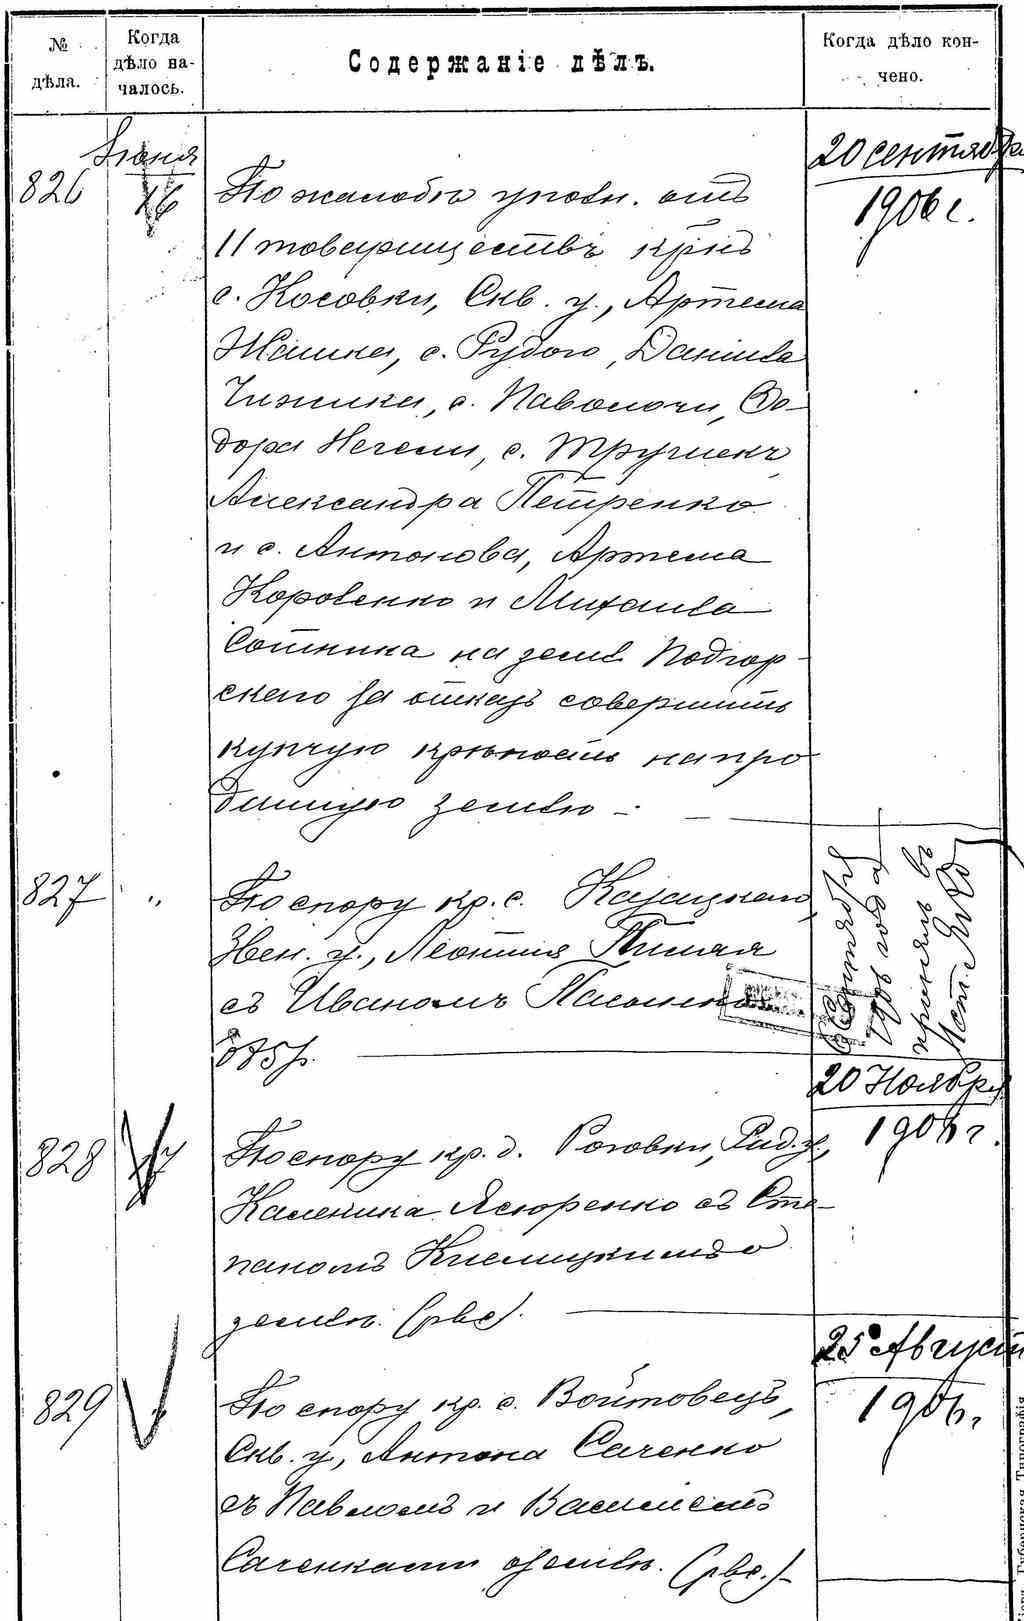 № дѣла.
Когда дѣло на-
чалось.
Содержаніе дѣлъ.
Когда дѣло кон-
чено.
Іюня
826
16
По жалобѣ уполн. отъ
11 товариществъ крнъ
с. Косовки, Скв. у., Артема
Жашка, с. Рудого, Даніила
Чижика, с. Паволочи, Ѳо-
дора Негели, с. Трушекъ
Александра Петренко
и с. Антонова, Артема
Коровенко и Михаила
Сотника на земл. Подгор-
скаго за отказъ совершить
купчую крѣпость на про
данную землю —
20 сентября
1906 г.
827
"
По спору кр. с. Казацкаго,
Звен. у., Леонтія
съ Иваномъ
Сентября
1906 года
принялъ въ
828
17
По спору кр. д. Роговки, Рад. у.,
Каленика Ясюренко съ Сте-
паномъ Кислицкимъ о
землѣ. (рвс).
20 Ноября
1906 г.
829
"
По спору кр. с. Войтовецъ,
Скв. у., Антона Саченко
съ Павломъ и Василіемъ
Саченками о землѣ. (рвс.) —
25 Август
1906 г.
Губернская Типографія